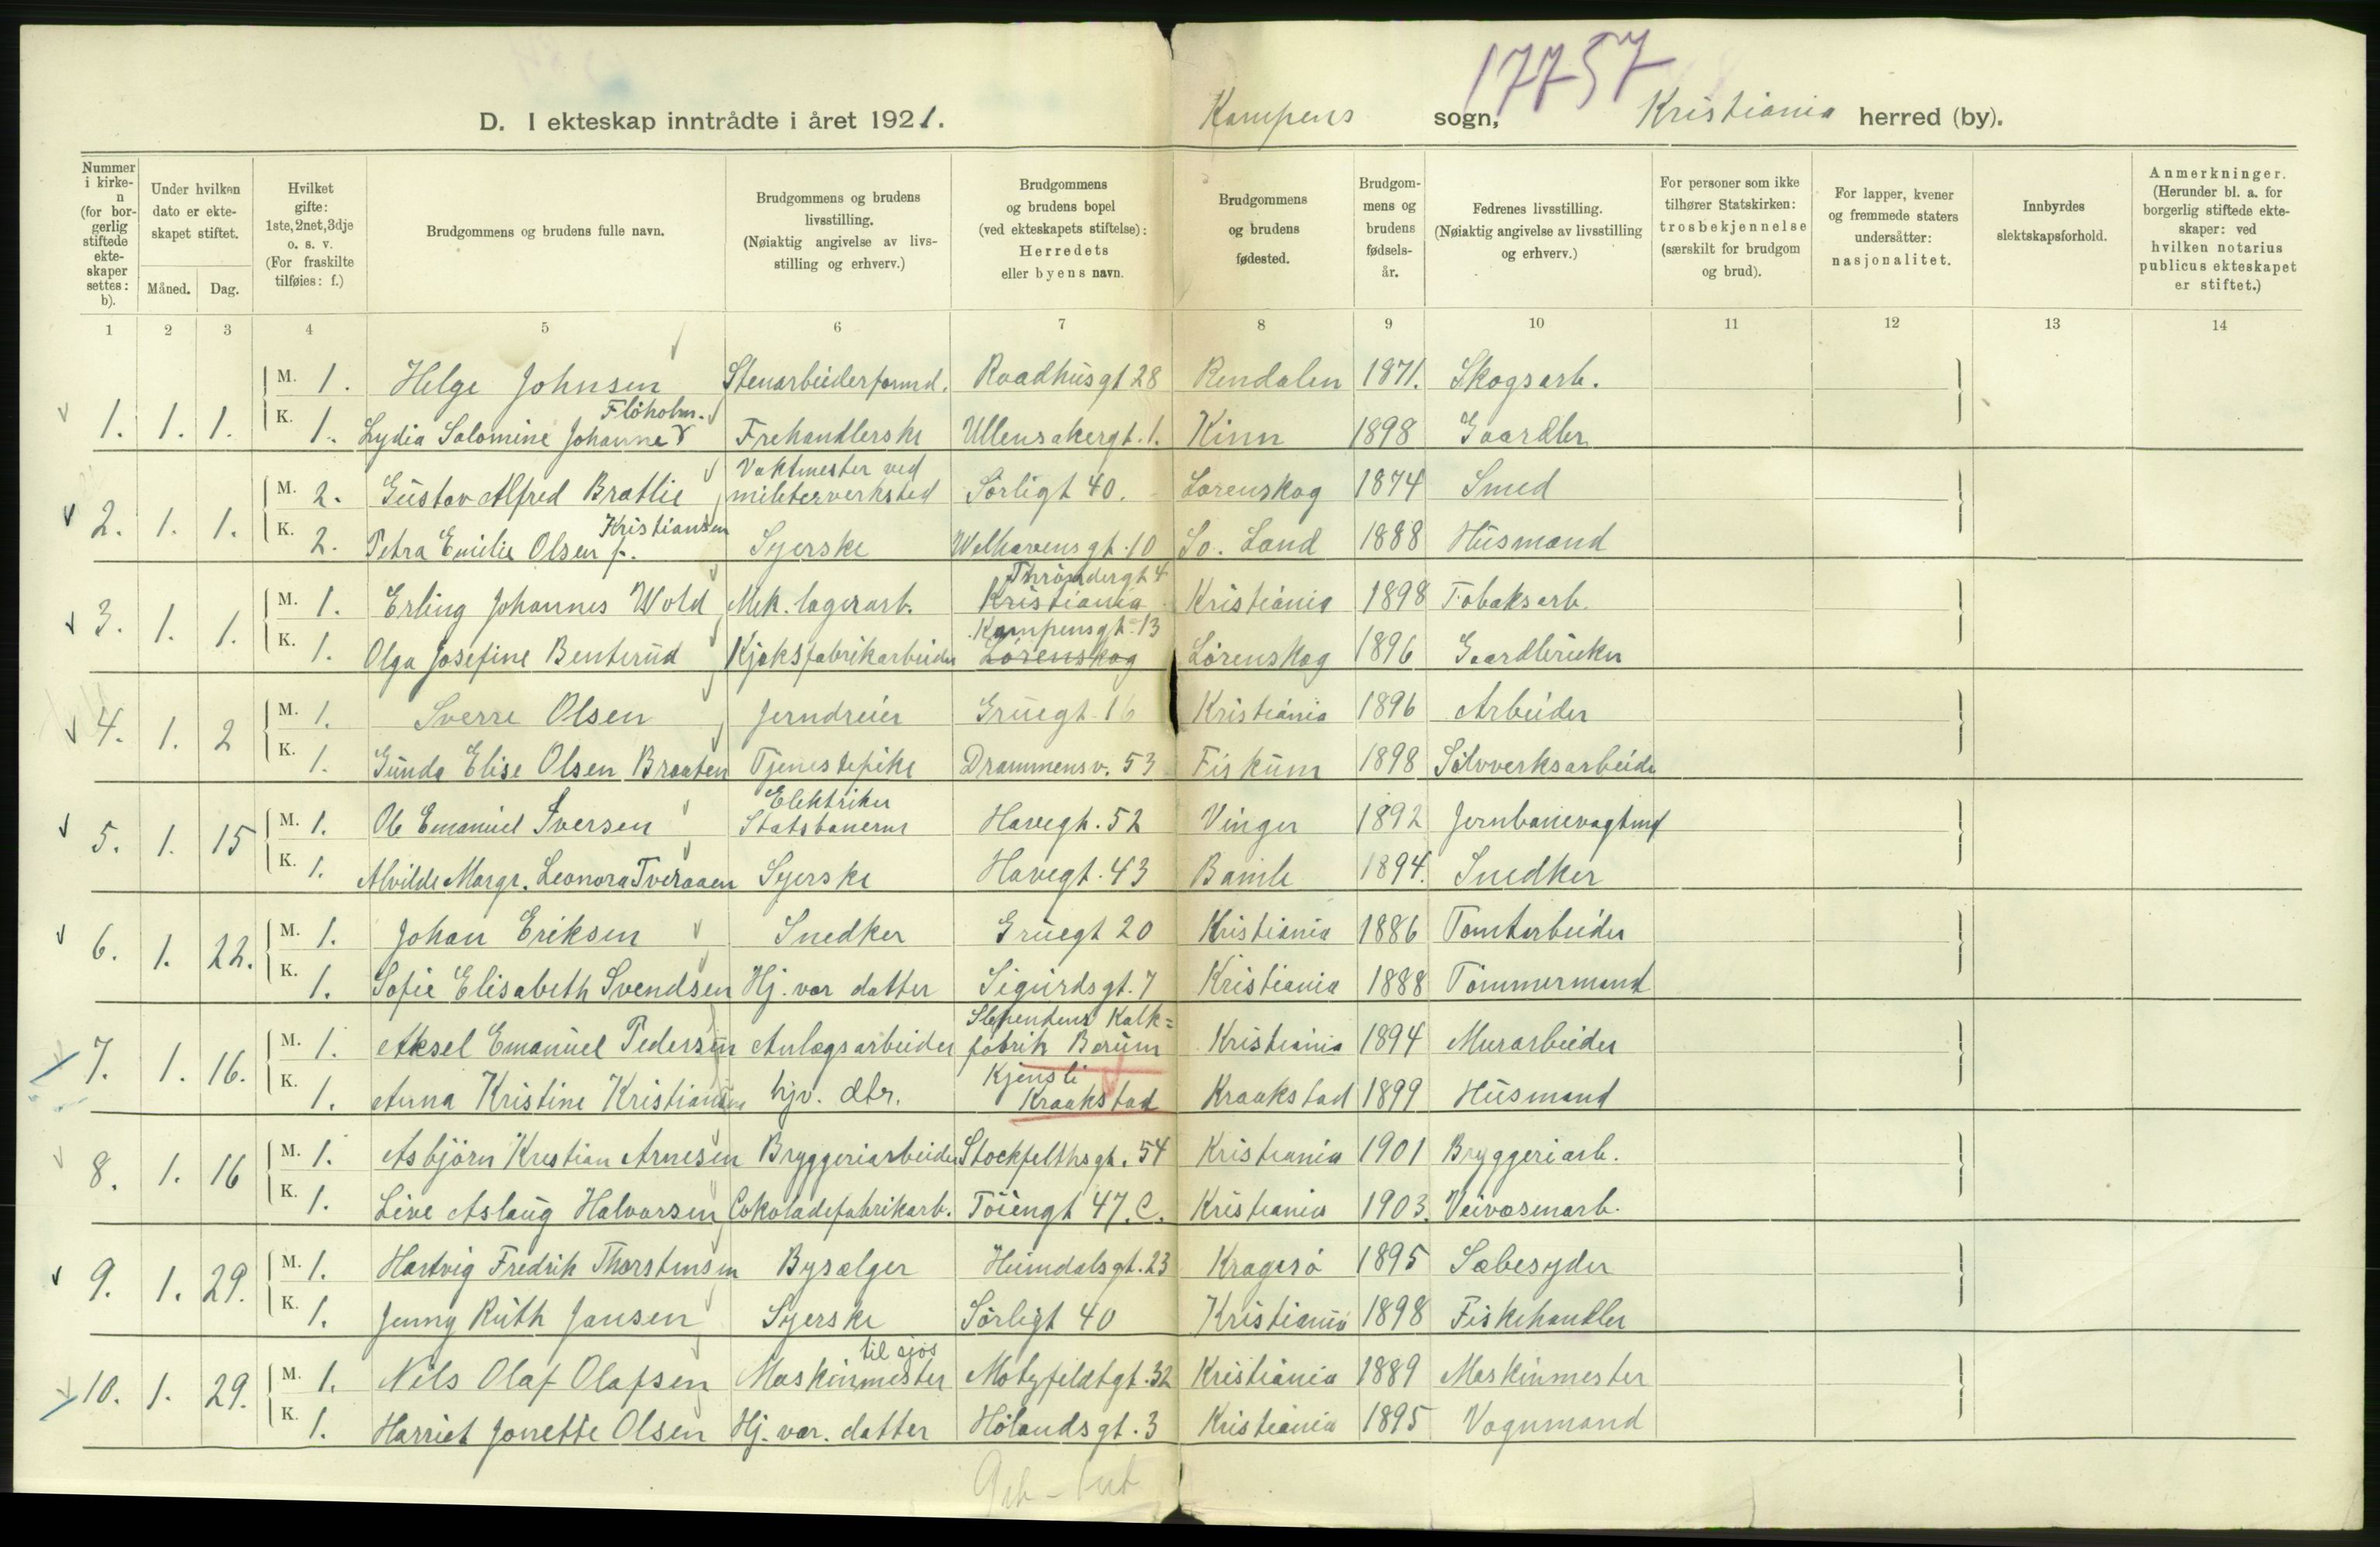 17757
D. I ekteskap inntrådte i året 1921. Kampens sogn, Kristiania herred (by).
Nummer i kirke- n (for bor- gerlig stiftede ekte- skaper settes: b).
Under hvilken dato er ekte- skapet stiftet.
Måned. Dag.
Hvilket gifte: 1ste, 2net, 3dje o. s. v. (For fraskilte tilføies: f.)
Brudgommens og brudens fulle navn.
Brudgommens og brudens livsstilling. (Nøiaktig angivelse av livs- stilling og erhverv.)
Brudgommens og brudens bopel (ved ekteskapets stiftelse): Herredets eller byens navn.
Brudgommens og brudens fødested.
Brudgom- mens og brudens fødsels- år.
Fedrenes livsstilling. (Nøiaktig angivelse av livsstilling og erhverv.)
For personer som ikke tilhører Statskirken: trosbekjennelse (særskilt for brudgom og brud).
For lapper, kvener og fremmede staters undersåtter: nasjonalitet.
Innbyrdes slektskapsforhold.
Anmerkninger. (Herunder bl. a. for borgerlig stiftede ekte- skaper: ved hvilken notarius publicus ekteskapet er stiftet.)
1 2 3 4 5 6 7 8 9 10 11 12 13 14
M. 1. Helge Johnsen Stenarbeiderformd. Raadhusgt 28 Rendalen 1871. Skogsarb.
Flöholm.
1. 1. 1. K. 1. Lydia Salomine Johanne Frehandlerske Ullensakergt. 1. Kinn 1898 Gaardbr.
Vaktmester ved
M. 2. Gustav Alfred Bratlie militerverksted Sörligt 40. Lorenskog 1874 Smed
Kristiansen
2. 1. 1. K. 2. Petra Emilie Olsen f. Syerske Welhavensgt. 10 So. Land 1888 Husmand
Thröndergt 4
M. 1. Erling Johannes Wold Mek. lagerarb. Kristiania Kristiania 1898 Tobaksarb.
Kampensgt. 13
3. 1. 1. K. 1. Olga Josefine Benterud Kjeksfabrikarbeider Lörenskog Lörenskog 1896 Gaardbruker
M. 1. Sverre Olsen Jerndreier Gruegt. 16 Kristiania 1896 Arbeider
4. 1. 2 K. 1. Gunda Elise Olsen Braaten Tjenestepike Drammensv. 53 Fiskum 1898 Sölvverksarbeide
Elektriker
M. 1. Ole Emanuel Iversen Statsbanerne Havegt. 52 Vinger 1892 Jernbanevagtmd
5. 1. 15 K. 1. Alvilde Margr. Leonora Tveraaen Syerske Havegt. 43 Bamle 1894. Snedker
M. 1. Johan Eriksen Snedker Gruegt 20 Kristiania 1886 Tomtarbeider
6. 1. 22. K. 1. Sofie Elisabeth Svendsen Hj. vær datter Sigurdsgt. 7 Kristiania 1888 Tömmermand
Slependens Kalk=
M. 1. Aksel Emanuel Pedersen Anlægsarbeider fabrik Bærum Kristiania 1894 Murarbeider
Kjensli
7. 1. 16. K. 1. Anna Kristine Kristiansen hjv. dtr. Kraakstad Kraakstad 1899 Husmand
M. 1. Asbjörn Kristian Arnesen Bryggeriarbeider Stockflethsgt. 54 Kristiania 1901 Bryggeriarb.
8. 1. 16 K. 1. Live Aslaug Halvorsen Cokoladefabrikarb. Töiengt 47. C. Kristiania 1903. Veivæsenarb.
M. 1. Hartvig Fredrik Thorstensen Bysælger Heimdalsgt. 23 Kragerö 1895 Sæbesyder
9. 1. 29. K. 1. Jenny Ruth Jansen Syerske Sörligt 40 Kristiania 1898 Fiskehandler
til sjös
M. 1. Nils Olaf Olafsen Maskinmester Motzfeldtgt. 32 Kristiania 1889 Maskinmester
10. 1. 29. K. 1. Harriet Jonette Olsen Hj. vær. datter Hölandsgt. 3 Kristiania 1895 Vognmand